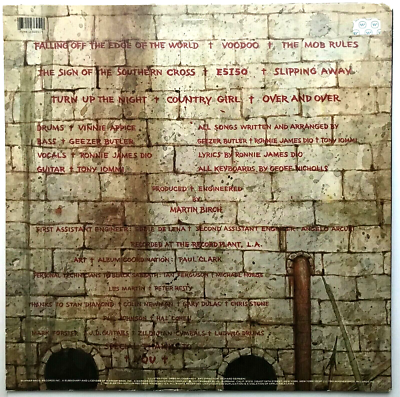 FALLING OFF THE EDGE OF THE WORLD † VOODOO † THE MOB RULES
THE SIGN OF THE SOUTHERN CROSS † E5150 † SLIPPING AWAY
TURN UP THE NIGHT † COUNTRY GIRL † OVER AND OVER
DRUMS † VINNIE APPICE
BASS † GEEZER BUTLER
VOCALS † RONNIE JAMES DIO
GUITAR † TONY IOMMI
ALL SONGS WRITTEN AND ARRANGED BY
GEEZER BUTLER † RONNIE JAMES DIO † TONY IOMMI
LYRICS BY RONNIE JAMES DIO
ALL KEYBOARDS BY GEOFF NICHOLLS
PRODUCED † ENGINEERED
BY
MARTIN BIRCH
FIRST ASSISTANT ENGINEER † EDDIE DELENA † SECOND ASSISTANT ENGINEER † ANGELO ARCURI
RECORDED AT THE RECORD PLANT, L.A.
ART † ALBUM COORDINATION : PAUL CLARK
PERSONAL TECHNICIANS TO BLACK SABBATH : IAN FERGUSON † MICHAEL
LES MARTIN † PETER RESTY
THANKS TO STAN DIAMOND † COLIN NEWMAN † GARY DULAC † CHRIS STONE
PHIL JOHNSON † HAL COHEN
MARK FORSTER † J.D. GUITARS † ZILDJIAN CYMBALS † LUDWIG DRUMS
YOU †